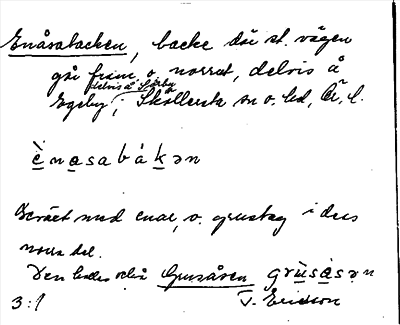 Enåsabacken, backe där st. vägen
går fram o. norrut, delvis å
delvis å Sörby
Egeby; Sköllersta sn o. hd, Ör. l.
è n a s a b á k ə n
Beväxt med enar, o. grustag i dess
norra del.
Den kallas också Grusåsen grùsàsən
3:1 T. Ericsson